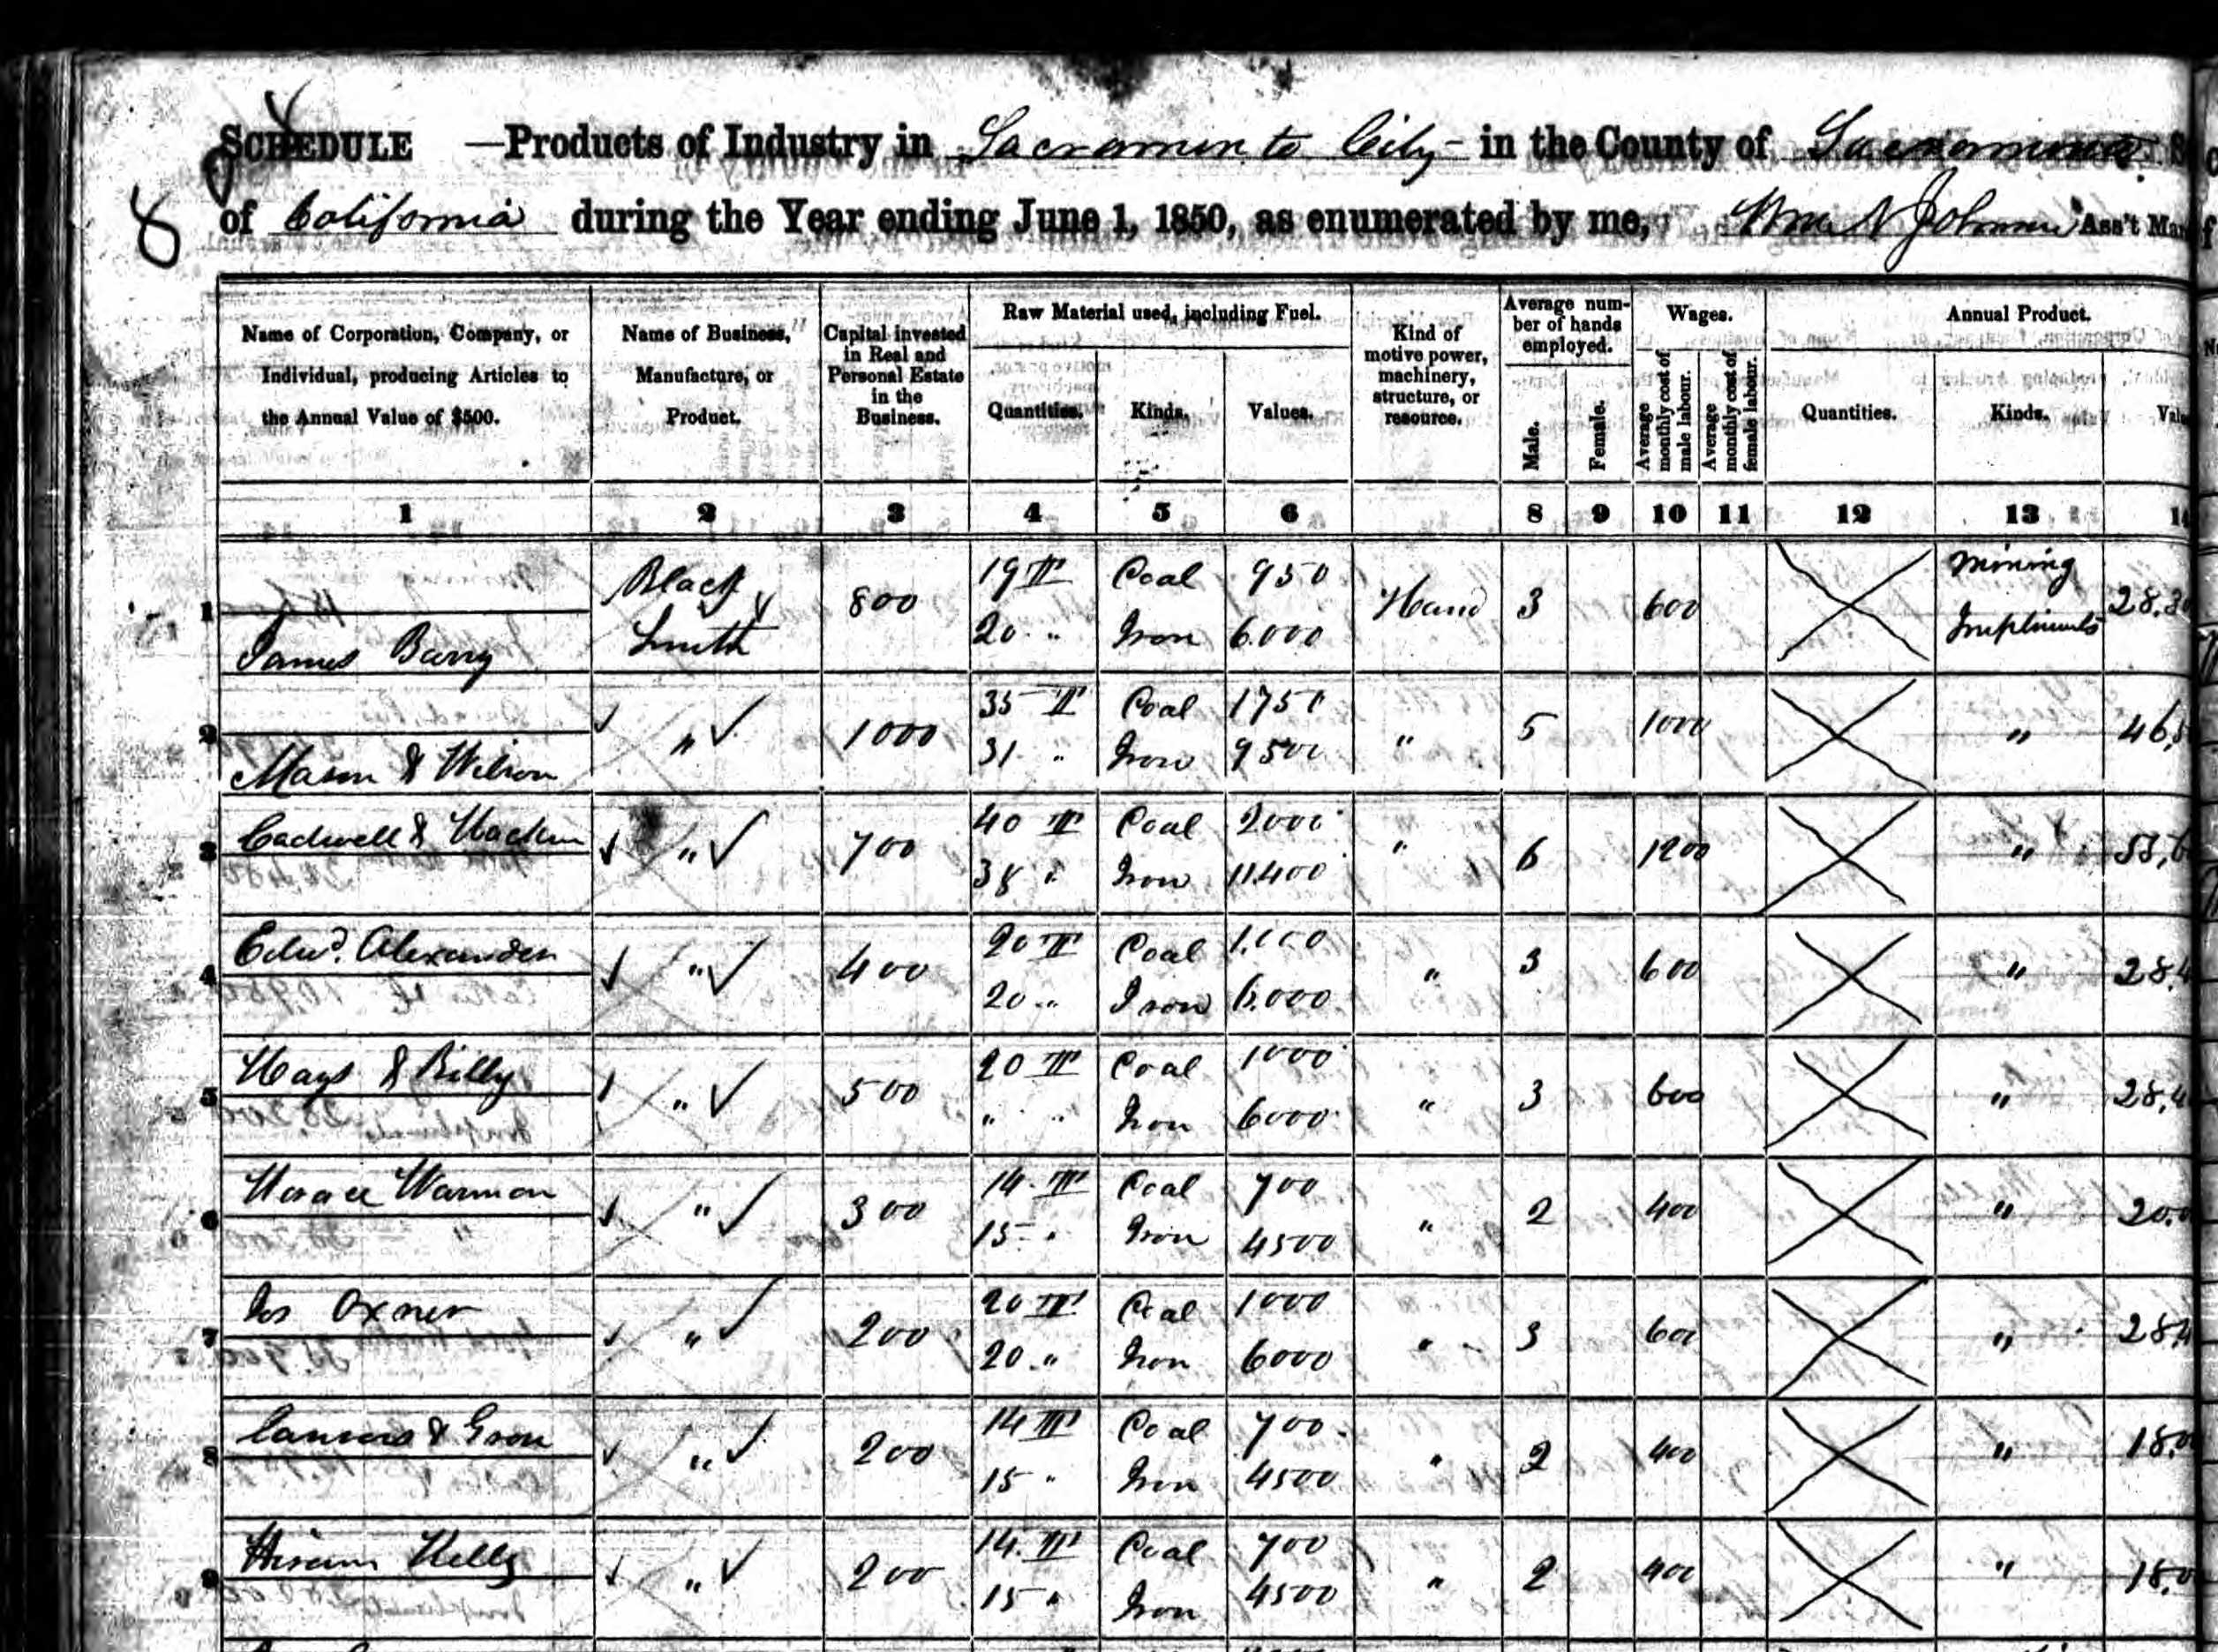 SCHEDULE —Products of Industry in Sacramento City in the County of Sacramento
of California during the Year ending June 1, 1850, as enumerated by me, Wm N Johnson Ass't Mar
8
Name of Corporation, Company, or Individual, producing Articles to the Annual Value of $500.
Name of Business, Manufacture, or Product.
Capital invested in Real and Personal Estate in the Business.
Raw Material used, including Fuel.
Quantities. Kinds. Values.
Kind of motive power, machinery, structure, or resource.
Average number of hands employed.
Male. Female.
Wages.
Average monthly cost of male labour. Average monthly cost of female labour.
Annual Product.
Quantities. Kinds.
1 2 3 4 5 6 8 9 10 11 12 13
1 James Barry Black Smith 800 19 Coal 950 Hand 3 600 Mining Impliments 28.3
20 " Iron 6.000
2 Mason & Wilson " 1000 35 Coal 1750 " 5 1000 " 46,5
31 " Iron 9500
3 Cadwell & " 700 40 Coal 2000 " 6 1200 " 55,6
38 " Iron 11.400
4 Edwd. Alexander " 400 20 Coal 1.000 " 3 600 " 28.4
20 " Iron 6.000
5 Hays & Billy " 500 20 Coal 1000 " 3 600 " 28,4
" " Iron 6000
6 Horace Warman " 300 14 Coal 700 " 2 400 " 20.0
15 " Iron 4500
7 Jos Oxner " 200 20 Coal 1000 " 3 600 " 284
20 " Iron 6000
8 & " 200 14 Coal 700 " 2 400 " 18.0
15 " Iron 4500
9 Hiram Kelly " 200 14 Coal 700 " 2 400 " 18.0
15 " Iron 4500